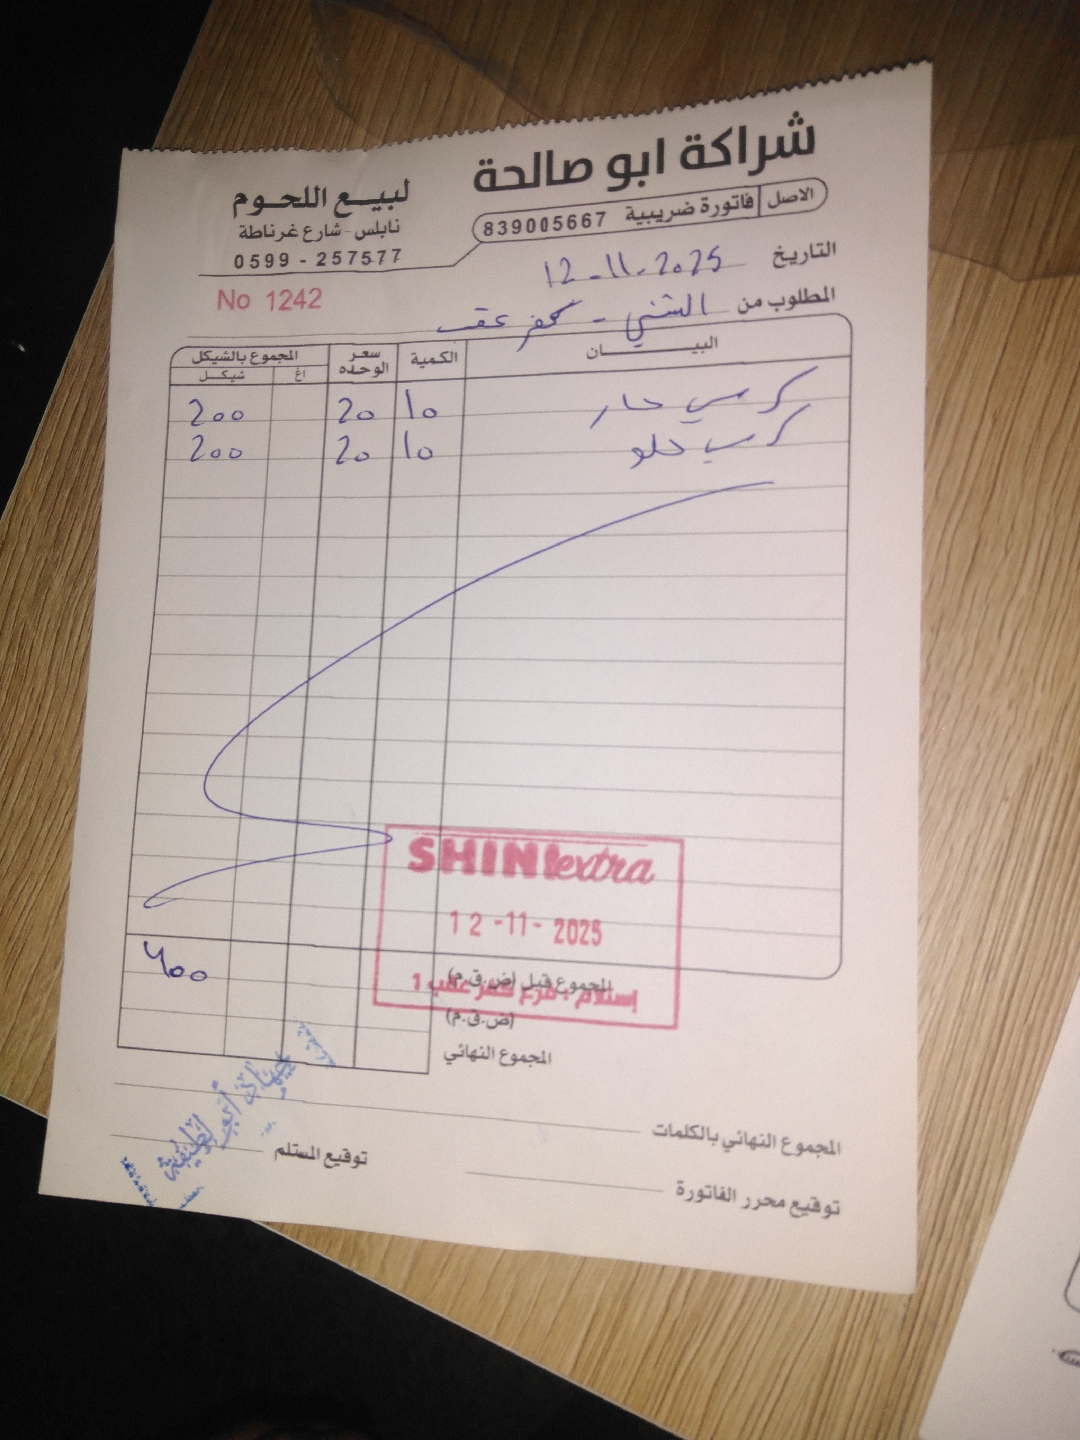 شراكة ابو صالحة
لبيع اللحوم
نابلس - شارع غرناطة
0599 - 257577
الاصل فاتورة ضريبية 839005667
No 1242
التاريخ 12-11-2025
المطلوب من الشني - كفر عقب
البيـــــــان الكمية سعر الوحده المجموع بالشيكل
اغ شيكـل
حار 10 20 200
حلو 10 20 200
SHINI extra
12-11-2025
إستلام : فرع كفر عقب 1
المجموع قبل (ض.ق.م) 400
(ض.ق.م)
المجموع النهائي
المجموع النهائي بالكلمات
توقيع المستلم
توقيع محرر الفاتورة